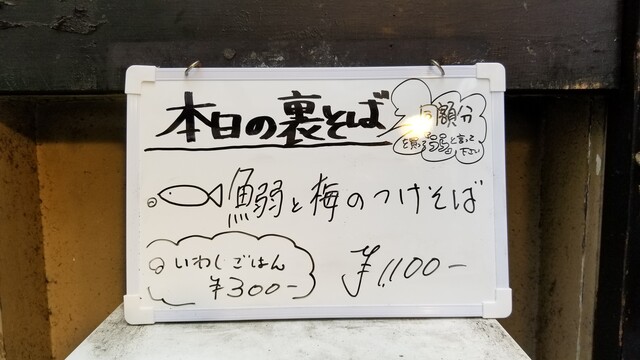 本日の裏そば
同額分
と言って
下さい
鰯と梅のつけそば
いわしごはん
¥300-
¥1,100-